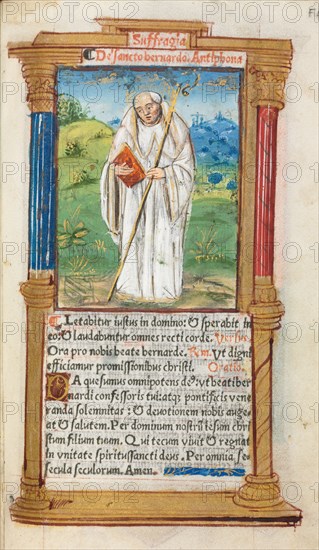 Suffragia
De sancto bernardo. Antiphona
Letabitur iustus in domino: & sperabit in
eo: & laudabuntur omnes recti corde. Versus.
Ora pro nobis beate bernarde. Rm. Ut digni
efficiamur promissionibus christi. Oratio.
Da quesumus omnipotens de9: ut beati ber
nardi confessoris tui: atq3 pontificis vene
randa solemnitas: & deuotionem nobis auge
at & salutem. Per dominum nostrũ iesum chri
stum filium tuum. Qui tecum viuit & regnat
in vnitate spiritussancti deus. Per omnia se
cula seculorum. Amen.